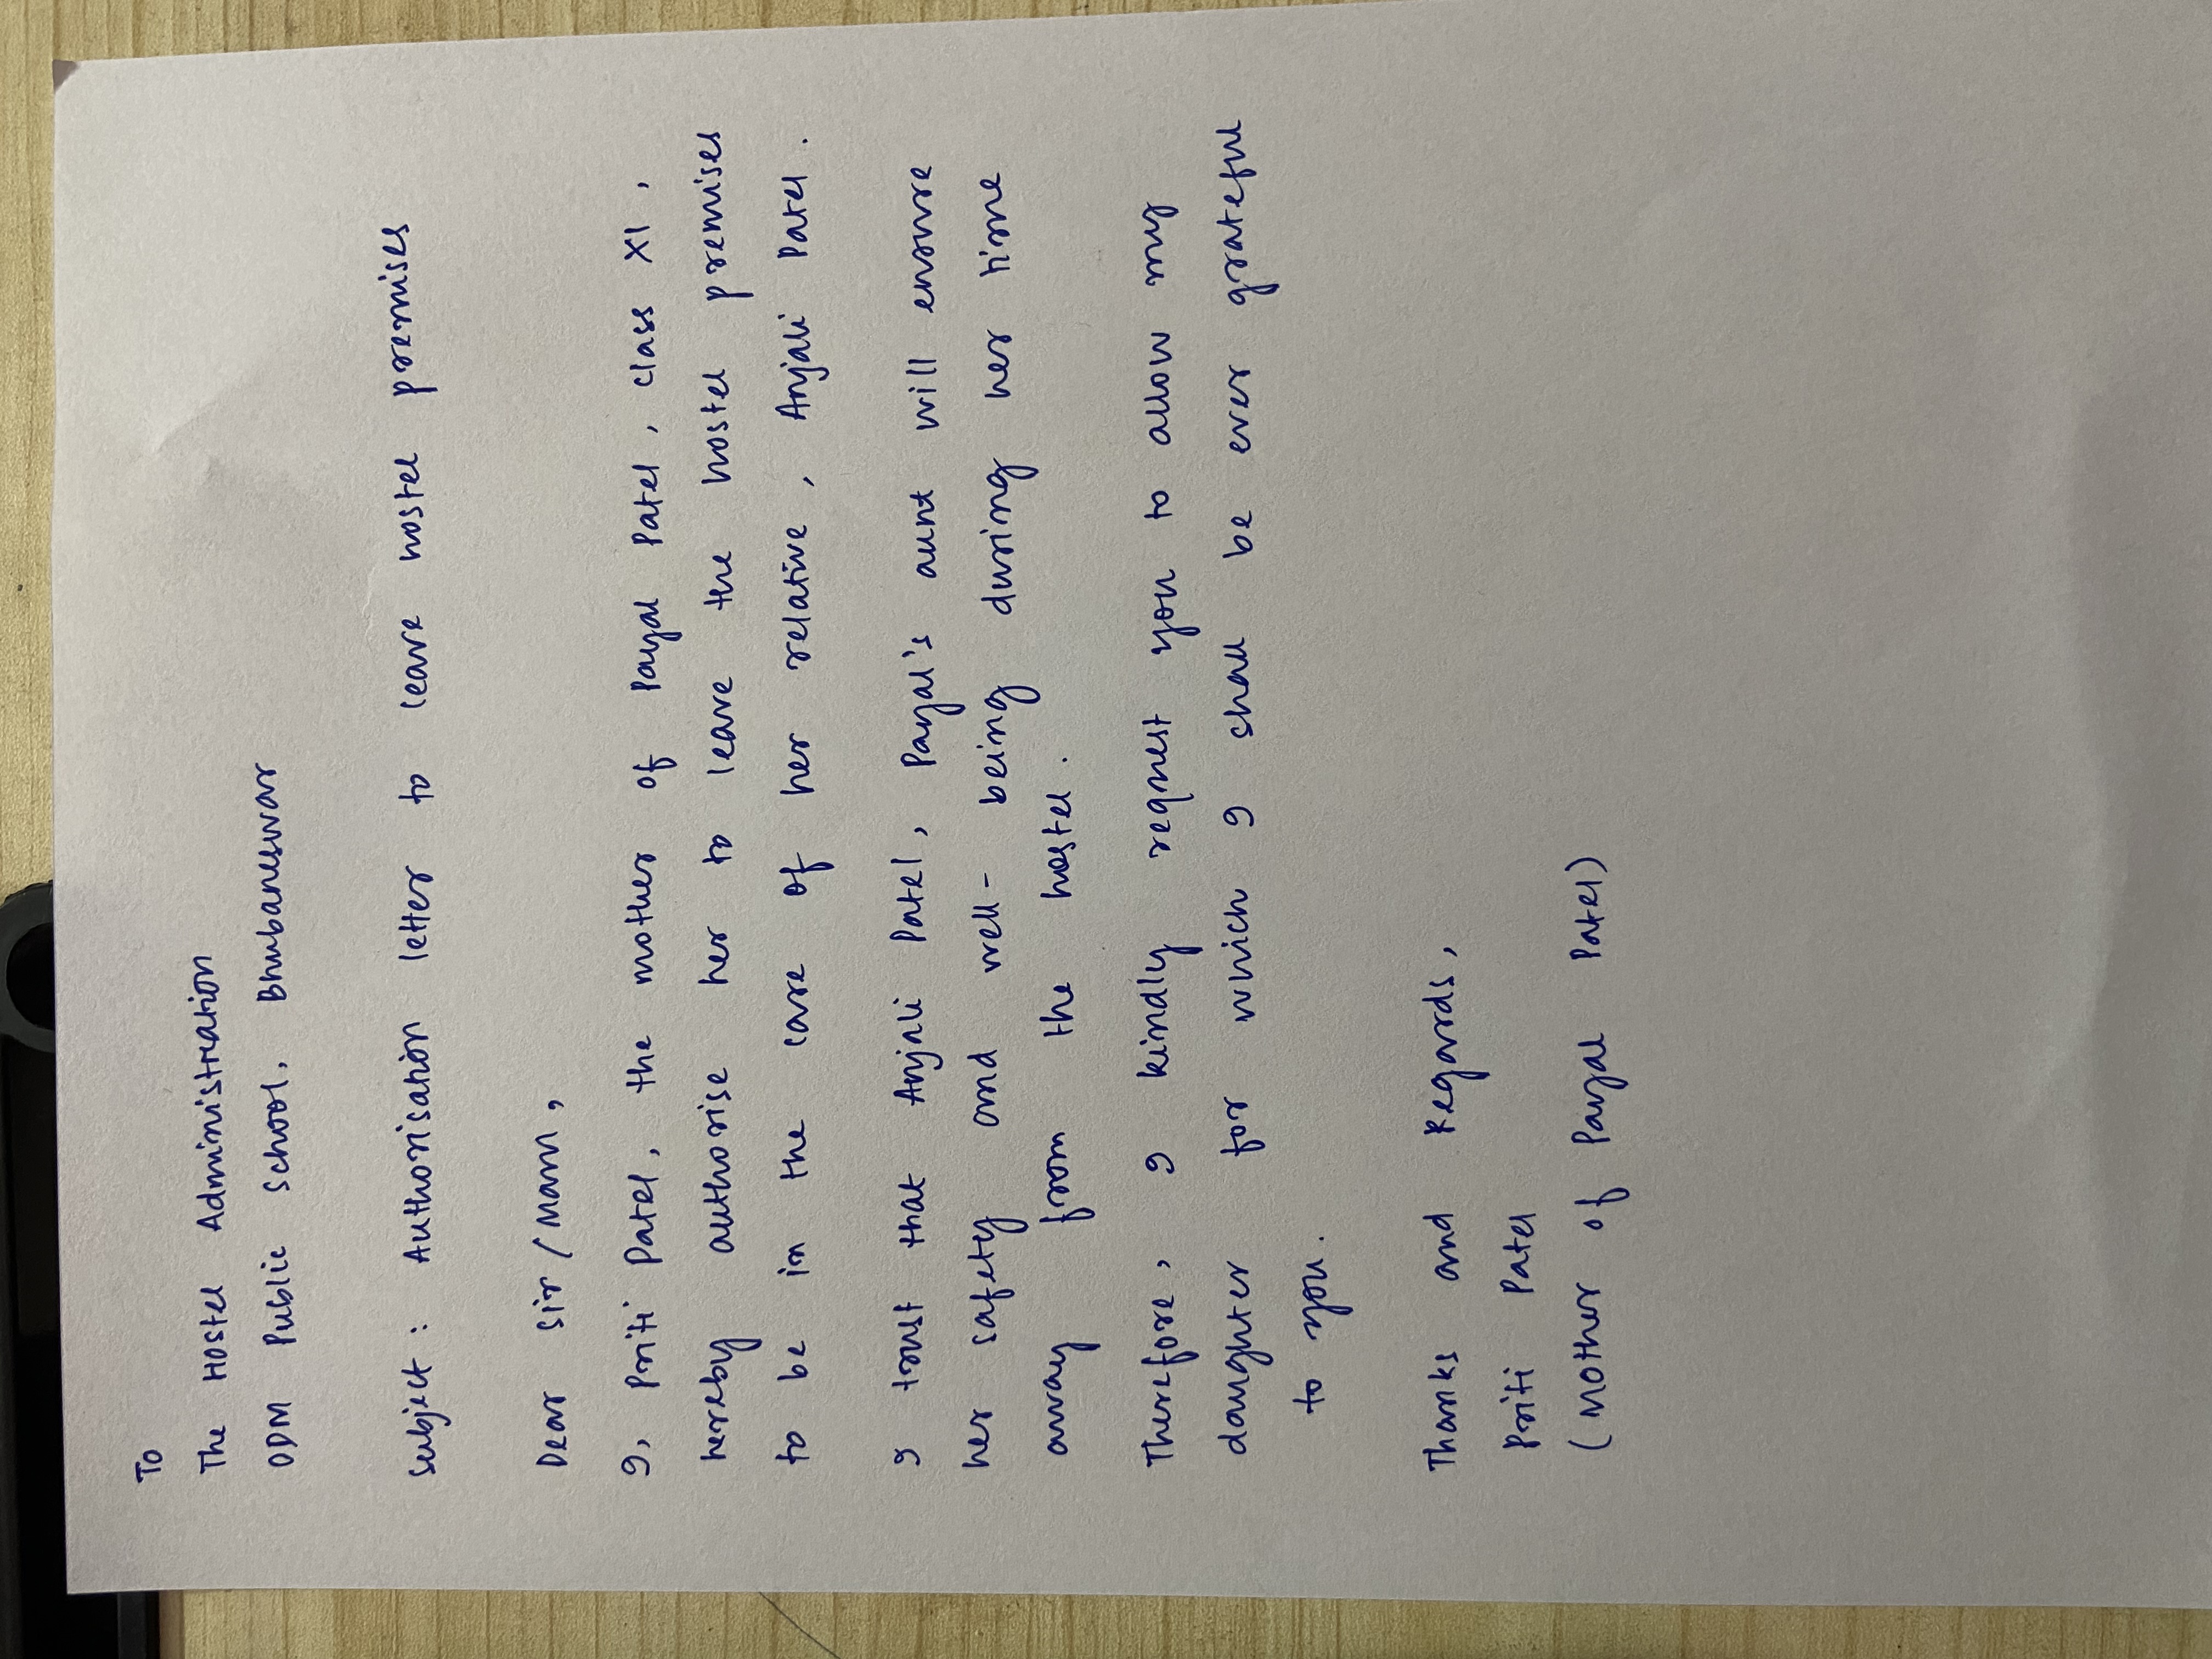 To
The Hostel Administration
ODM Public School, Bhubaneswar
Subject : Authorisation letter to leave hostel premises
Dear Sir/Mam,
I, Priti Patel, the mother of Payal Patel, class XI,
hereby authorise her to leave the hostel premises
to be in the care of her relative, Anjali Patel.
I trust that Anjali Patel, Payal's aunt will ensure
her safety and well-being during her time
away from the hostel.
Therefore, I kindly request you to allow my
daughter for which I shall be ever grateful
to you.
Thanks and Regards,
Priti Patel
(Mother of Payal Patel)